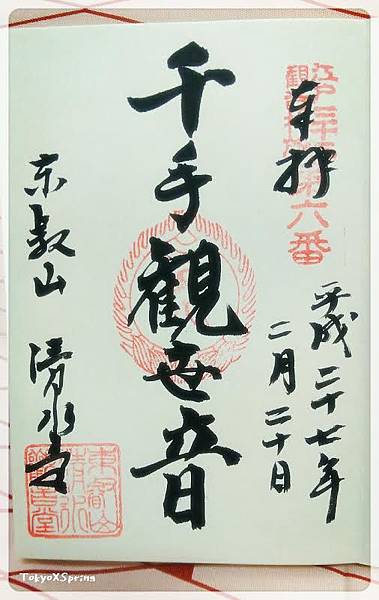 江戸三十三
観音札所第六番
奉拝
平成二十七年
二月二十日
千手観世音
東叡山 清水堂
東叡山
清水
観音堂
TokyoXSpring